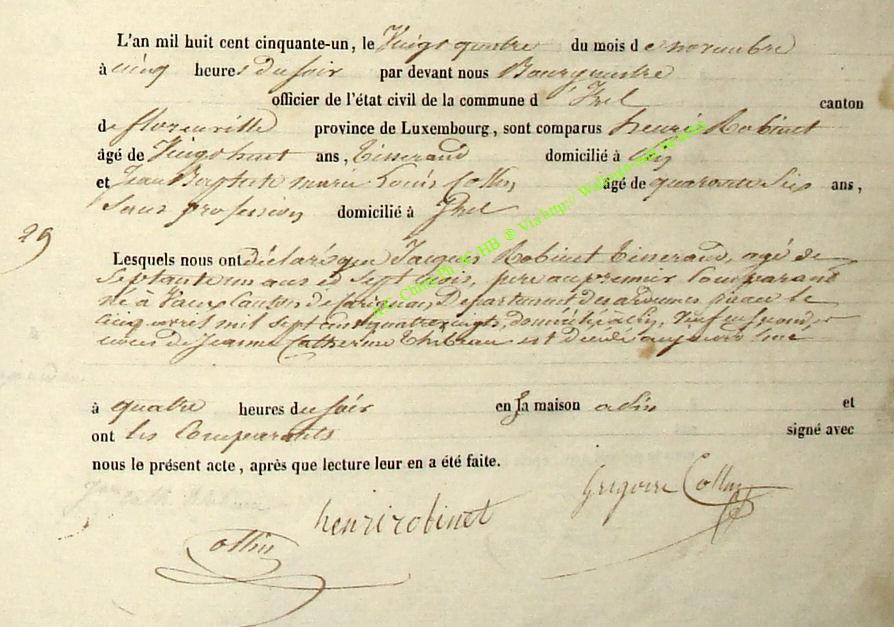 L'an mil huit cent cinquante-un, le Vingt quatre du mois de novembre
à cinq heures du soir par devant nous Bourgmestre
officier de l'état civil de la commune d'Izel canton
de florenville province de Luxembourg, sont comparus henri Robinet
âgé de Vingt huit ans, Tisserand domicilié à
et Jean Baptiste marie Louis Collin âgé de quarante six ans,
Sans profession domicilié à Izel
29
Lesquels nous ont déclaré que Jacques Robinet Tisserand, agé de
Septante un ans et Sept mois, père au premier Comparant
né à Vaux Canton de Carignan, Departement des ardennes le
cinq avril mil Sept cent quatrevingts, domicilié à, Veuf en Secondes
noces de Jeanne Catherine Thibeau est décédé aujourd'hui
à quatre heures du soir en la maison et
ont les Comparants signé avec
nous le présent acte, après que lecture leur en a été faite.
Grégoire Collin
henri robinet
Collin
Via http://